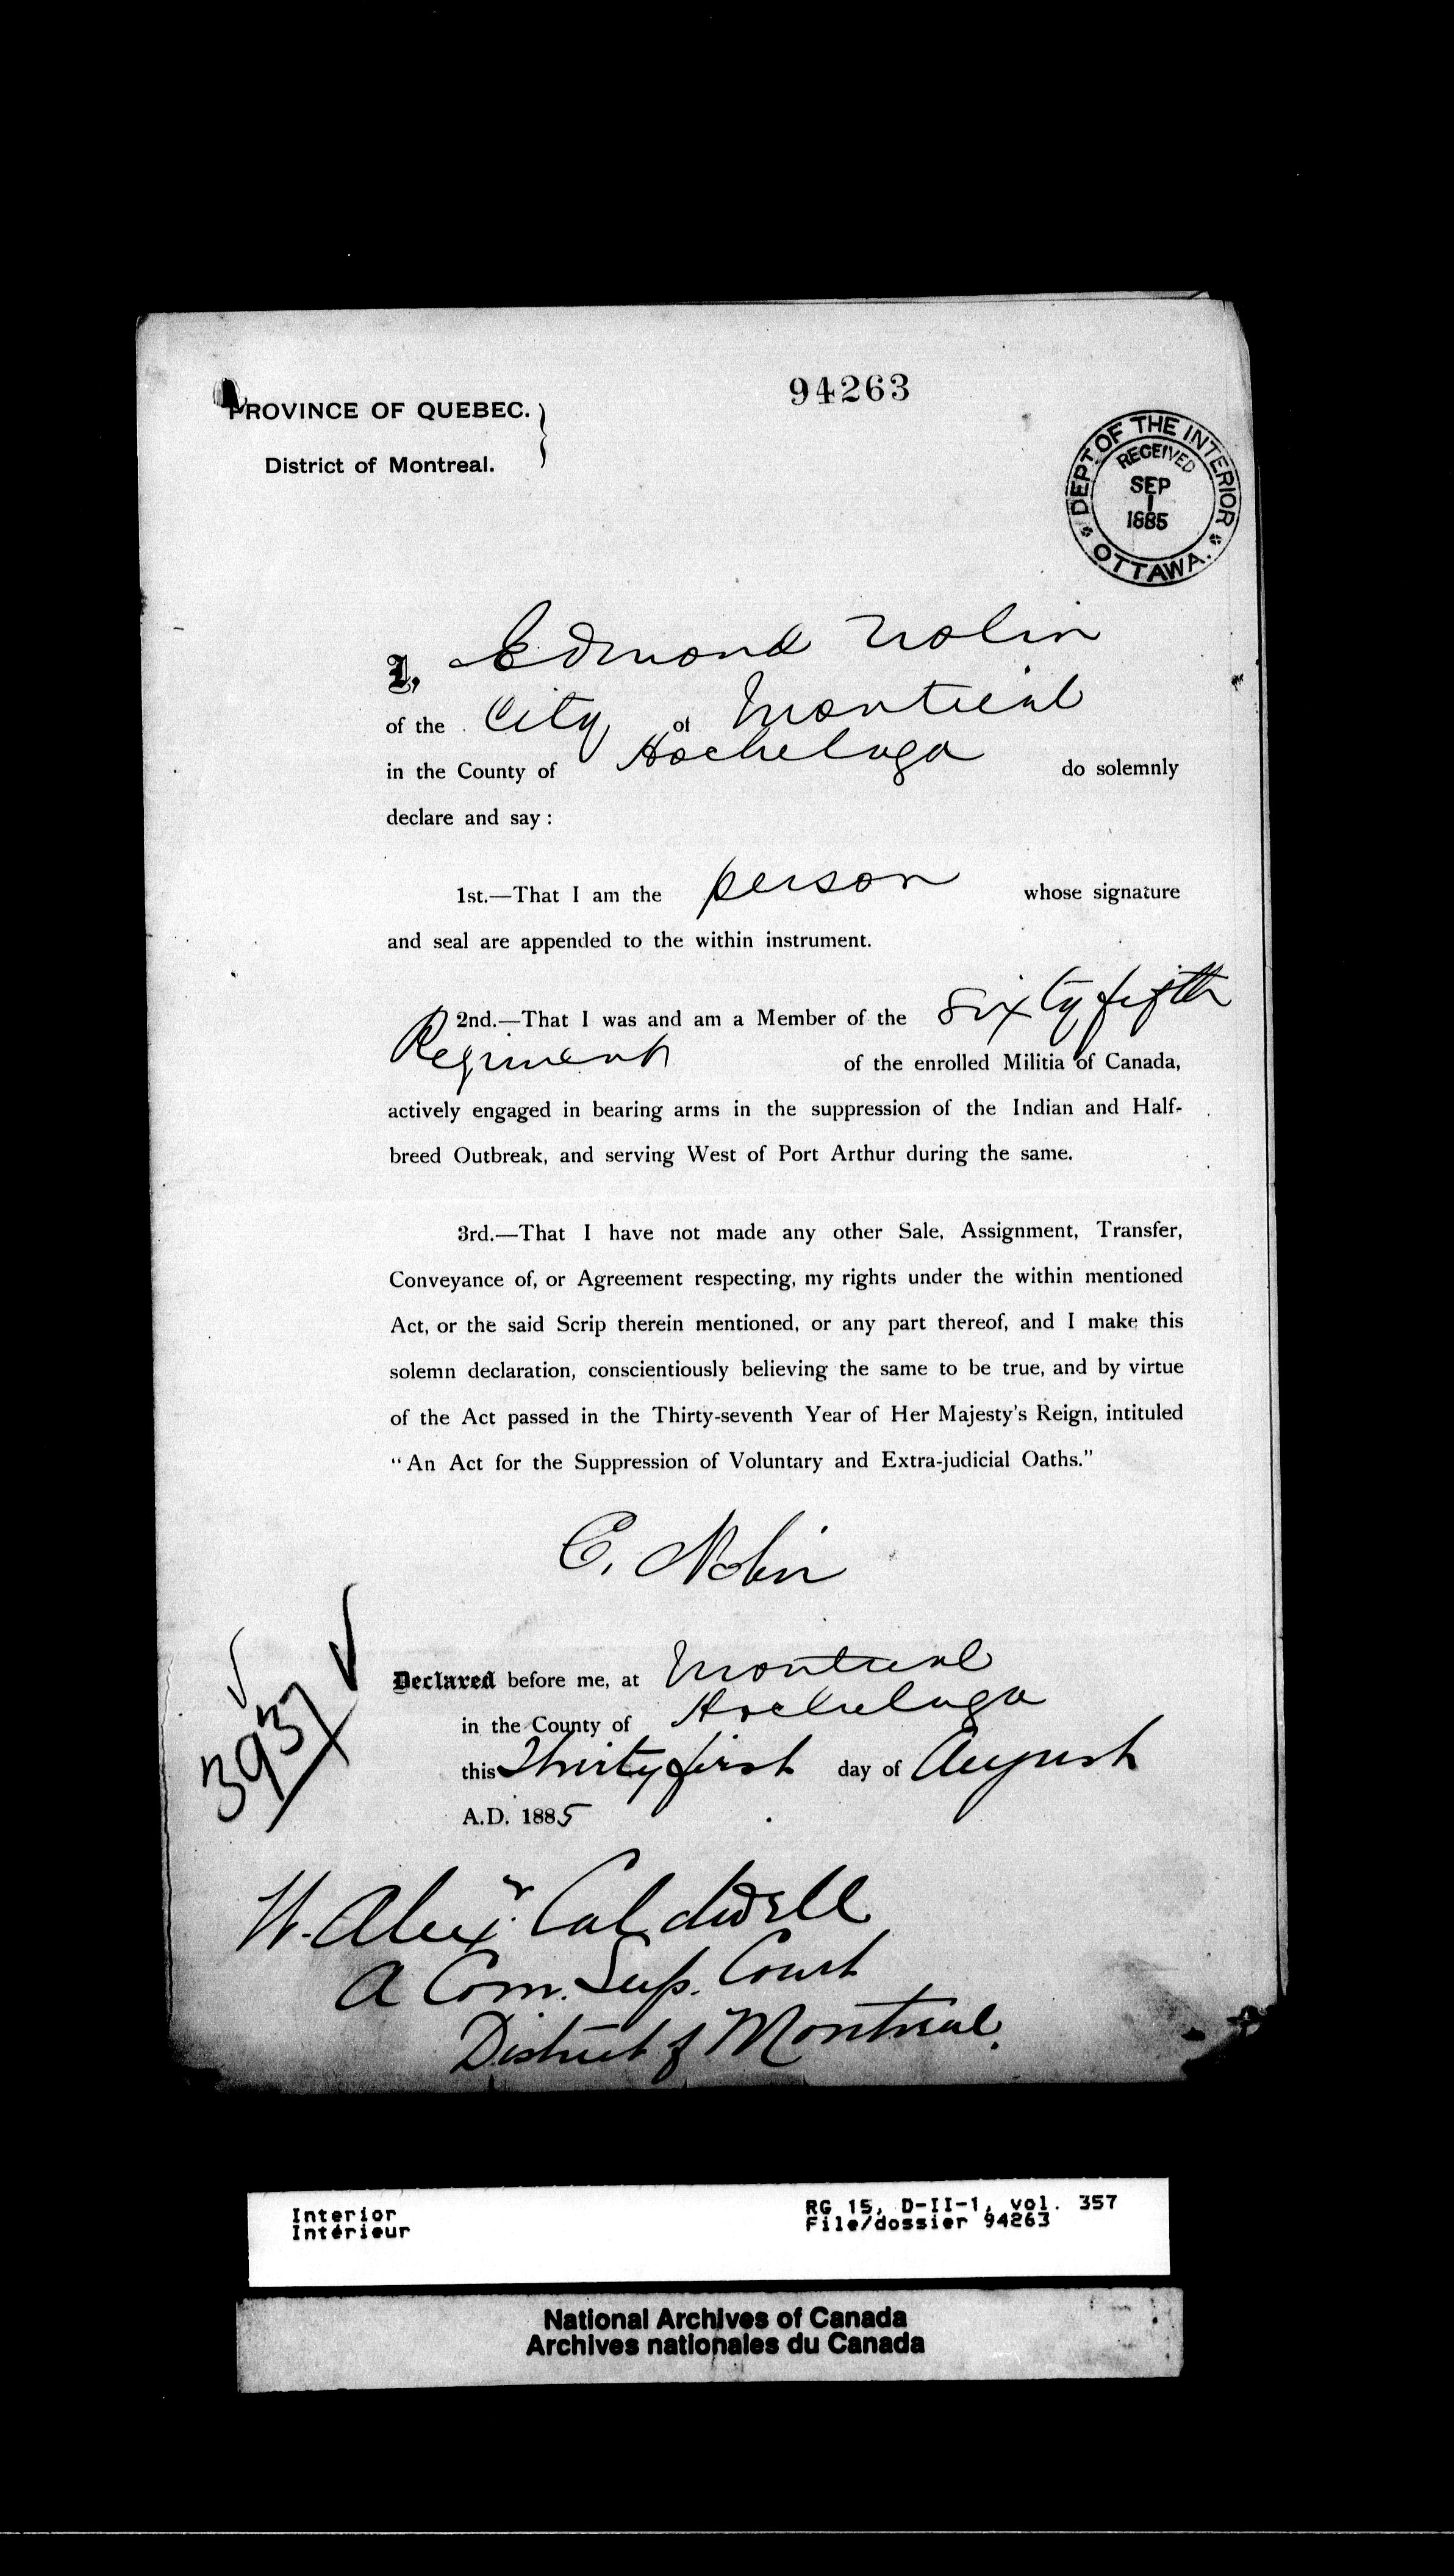 94263
PROVINCE OF QUEBEC.
District of Montreal.
DEPT. OF THE INTERIOR
RECEIVED
SEP
1
1885
OTTAWA.
I, Edmond Nolin
of the City of Montreal
in the County of Hochelaga do solemnly
declare and say:
1st.—That I am the person whose signature
and seal are appended to the within instrument.
2nd.—That I was and am a Member of the Sixty fifth
Regiment of the enrolled Militia of Canada,
actively engaged in bearing arms in the suppression of the Indian and Half-
breed Outbreak, and serving West of Port Arthur during the same.
3rd.—That I have not made any other Sale, Assignment, Transfer,
Conveyance of, or Agreement respecting, my rights under the within mentioned
Act, or the said Scrip therein mentioned, or any part thereof, and I make this
solemn declaration, conscientiously believing the same to be true, and by virtue
of the Act passed in the Thirty-seventh Year of Her Majesty's Reign, intituled
"An Act for the Suppression of Voluntary and Extra-judicial Oaths."
E. Nolin
Declared before me, at Montreal
in the County of Hochelaga
this Thirty first day of August
A.D. 1885
393
W. Alexr. Caldwell
A Com. Sup. Court
District of Montreal.
Interior RG 15, D-II-1, vol. 357
Intérieur File/dossier 94263
National Archives of Canada
Archives nationales du Canada